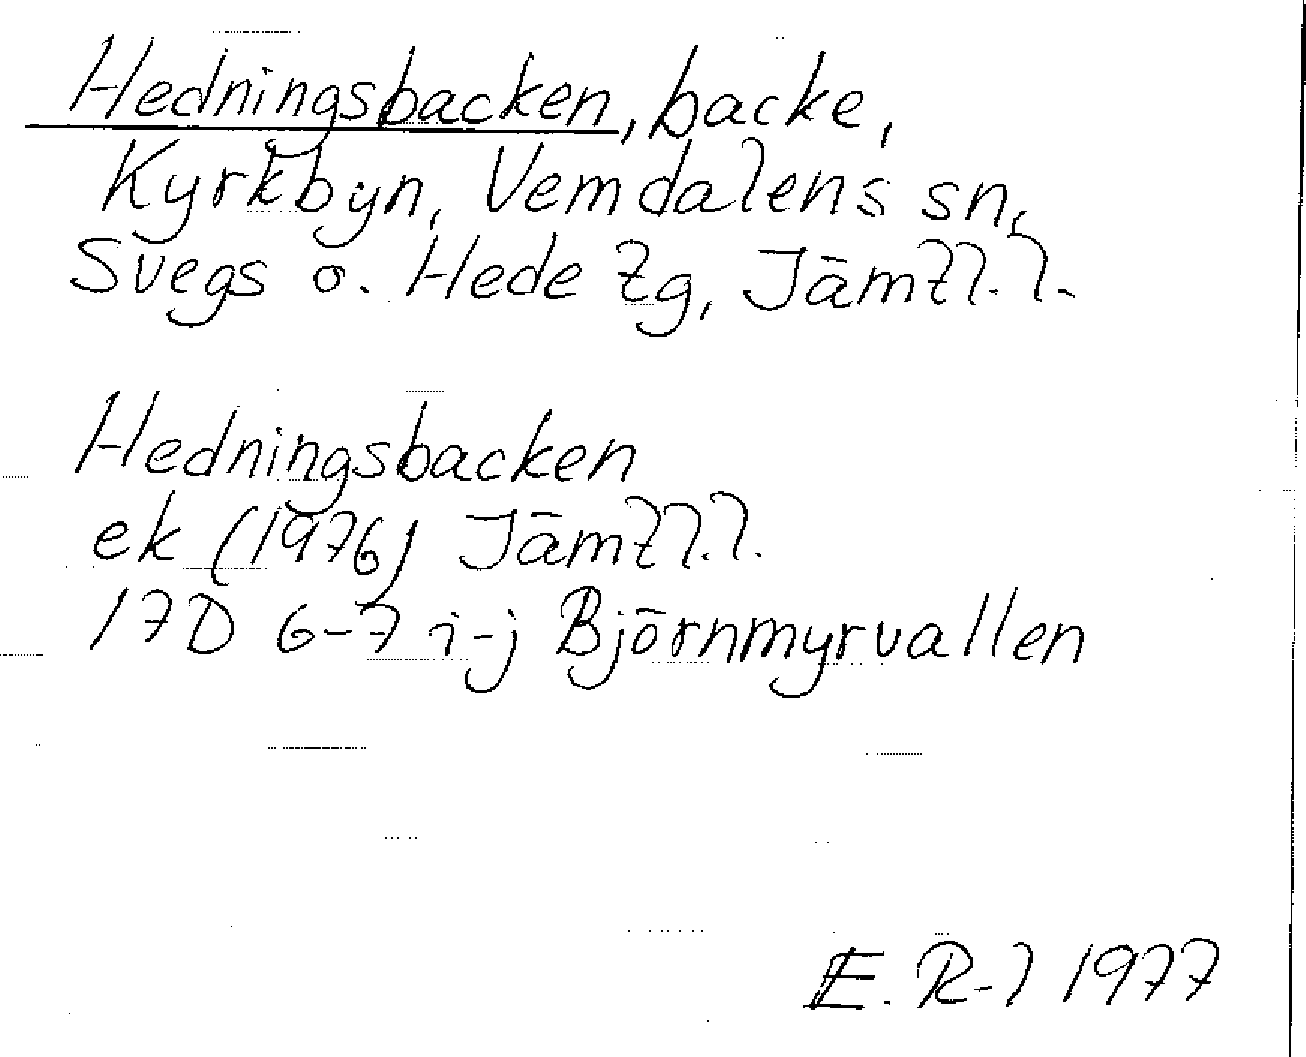 Hedningsbacken, backe,
Kyrkbyn, Vemdalens sn,
Svegs o. Hede tg, Jämtl. l.
Hedningsbacken
ek (1976) Jämtl. l.
17D 6-7 i-j Björnmyrvallen
E. R-l 1977